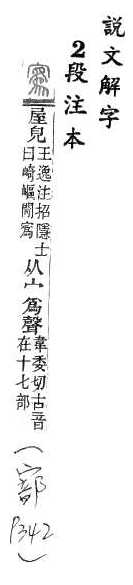 說文解字
2段注本
寪
屋皃
王逸注招隱士
曰崎嶇閒寪
从宀爲聲
韋委切古音
在十七部
(宀部
P342)